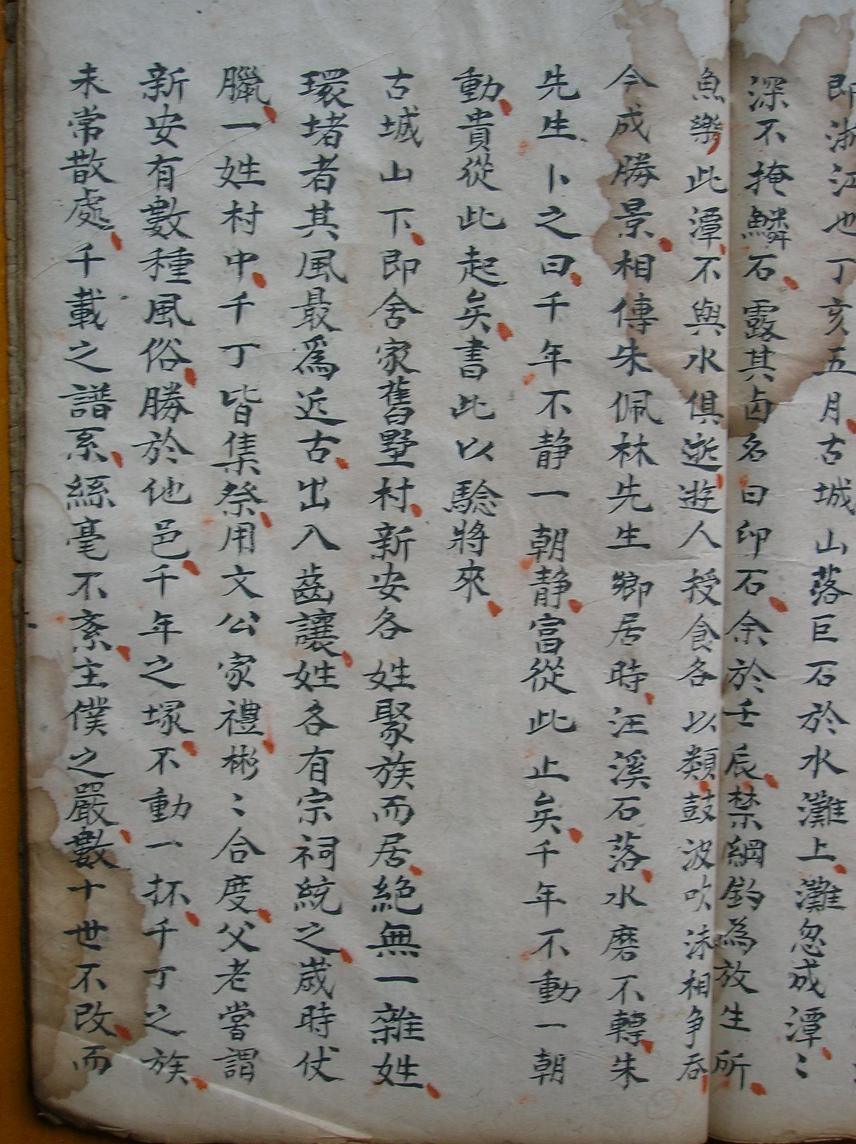 即浙江也丁亥五月古城山落巨石於水灘上灘忽成潭〻
深不掩鱗石露其卤名曰印石余於壬辰禁網釣為放生所
魚樂此潭不與水俱逝遊人授食各以類鼓波吹沫相争吞
今成勝景相傳朱佩林先生鄉居時汪溪石落水磨不轉朱
先生卜之曰千年不静一朝静富從此止矣千年不動一朝
動貴從此起矣書此以騐將來
古城山下即舍家舊墅村新安各姓聚族而居絕無一雜姓
環堵者其風最為近古出入齒讓姓各有宗祠統之歲時伏
臘一姓村中千丁皆集祭用文公家禮彬〻合度父老嘗謂
新安有數種風俗勝於他邑千年之塚不動一抔千丁之族
未常散處千載之譜系絲毫不紊主僕之嚴數十世不改而